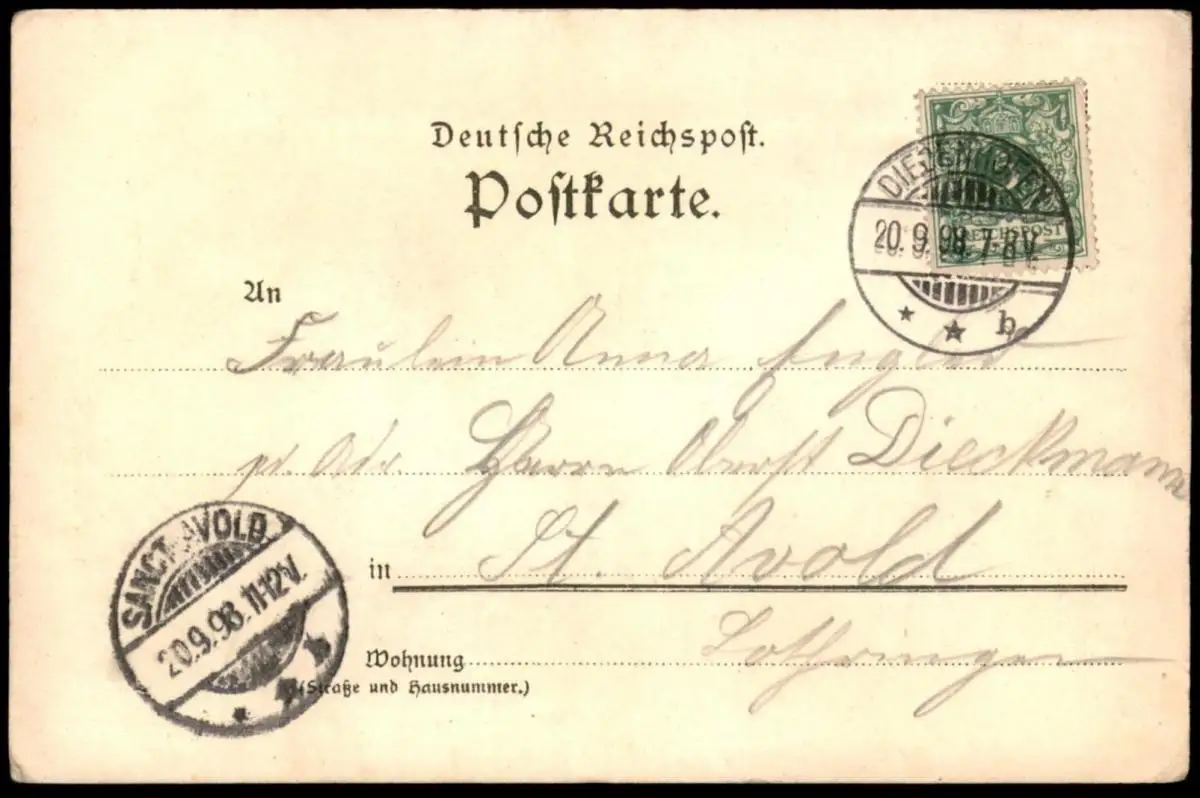 Deutsche Reichspost.
Postkarte.
REICHSPOST
DIEDENHOFEN
20.9.98.7-8V.
b
An
Fräulein Anna
pr. Adr. Herrn Oberst Dieckmann
in St. Avold
Wohnung Lothringen
(Straße und Hausnummer.)
SANCT AVOLD
20.9.98.11-12V.
b